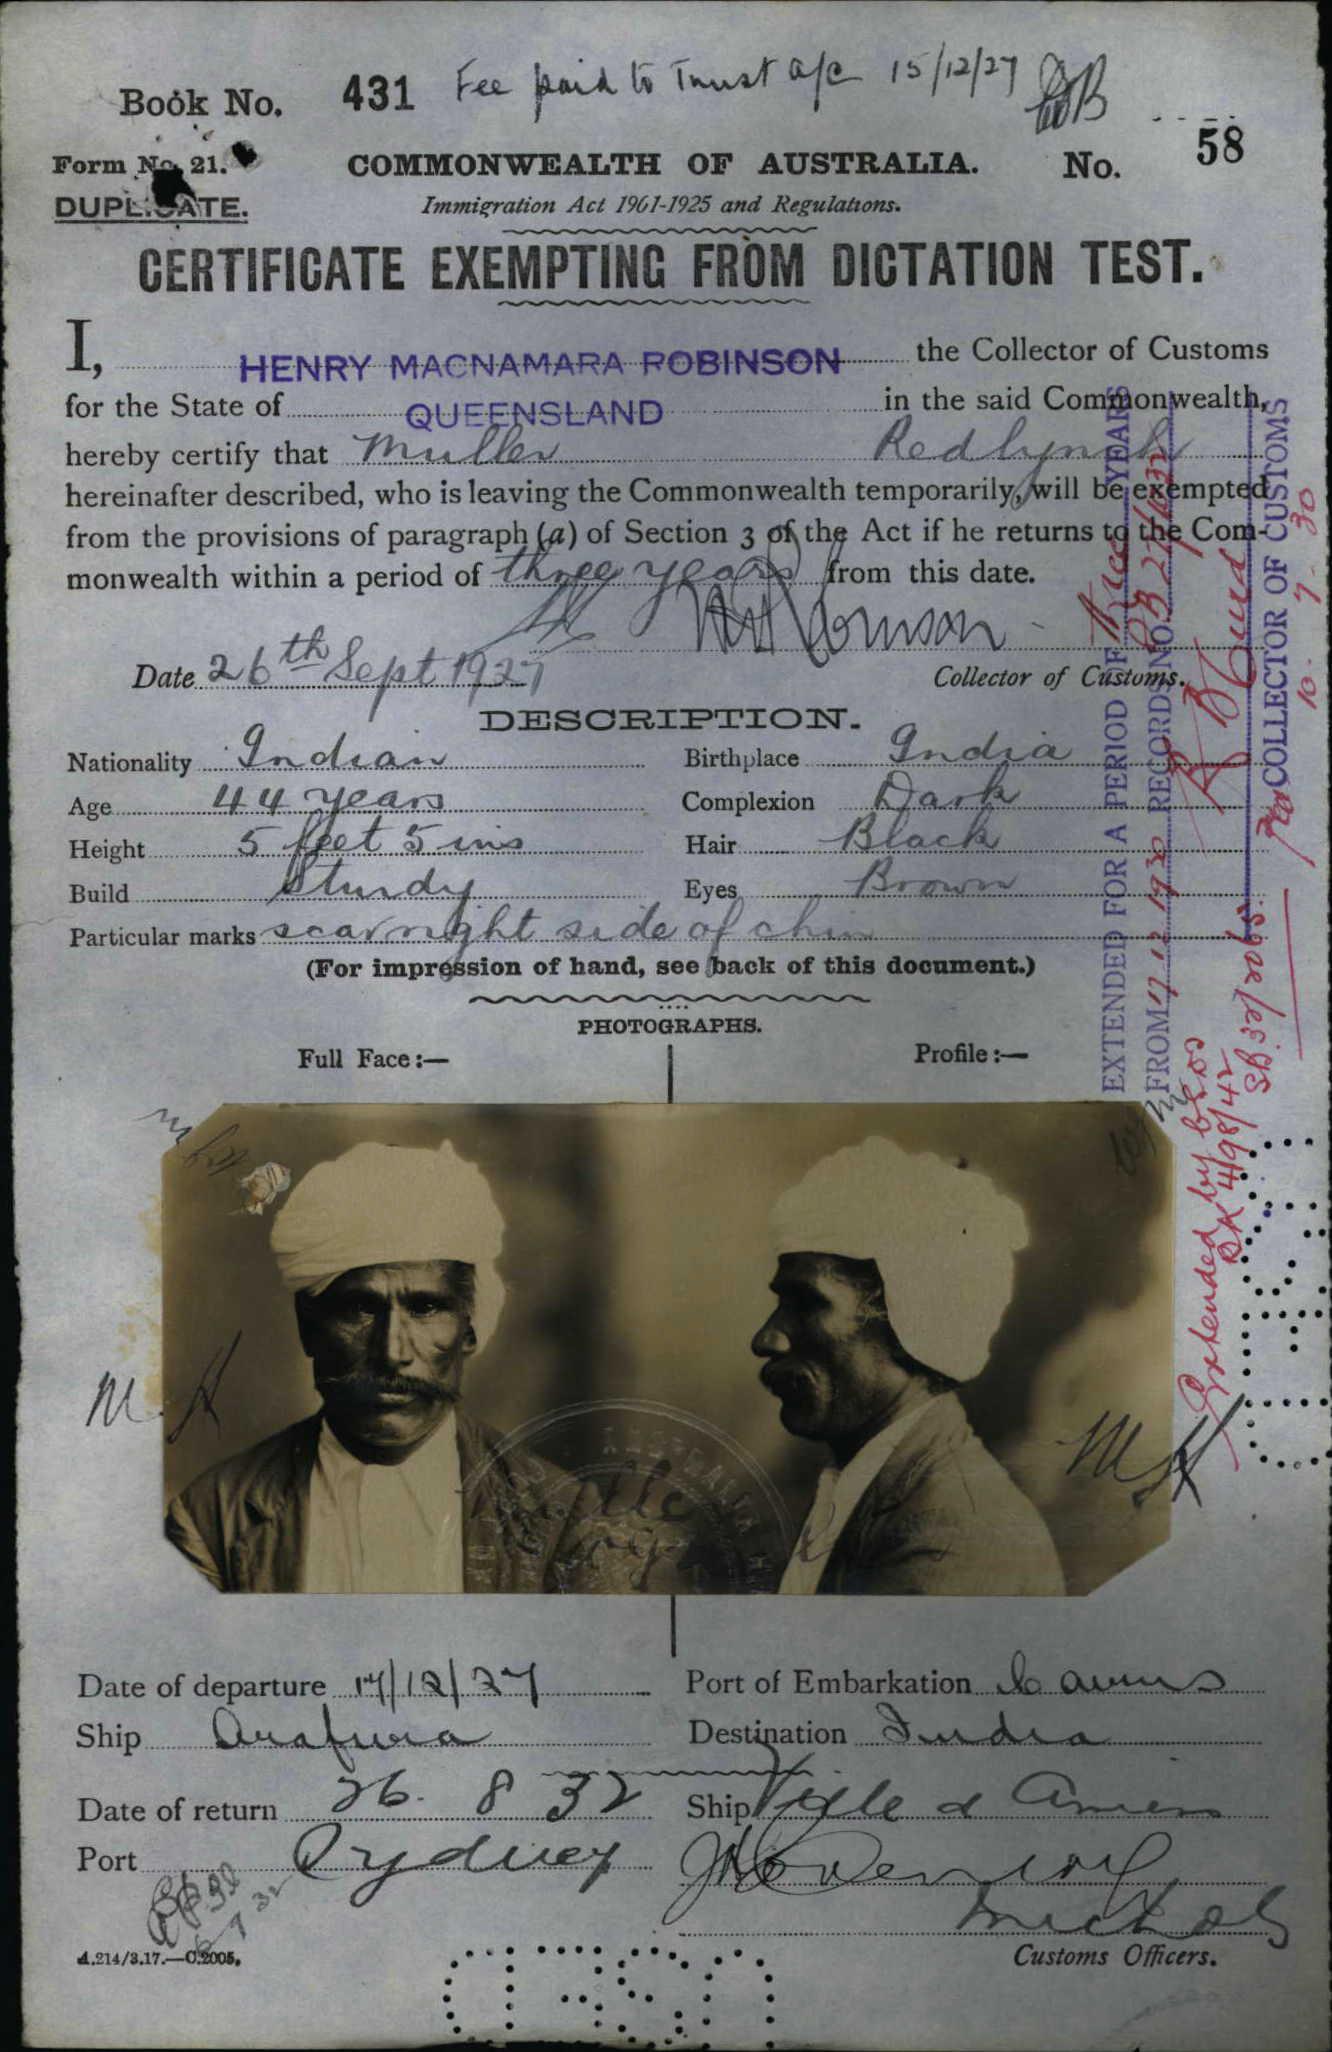 Book No. 431 Fee paid to Trust a/c 15/12/27
Form No. 21. COMMONWEALTH OF AUSTRALIA. No. 58
DUPLICATE. Immigration Act 1901-1925 and Regulations.
CERTIFICATE EXEMPTING FROM DICTATION TEST.
I, HENRY MACNAMARA ROBINSON the Collector of Customs
for the State of QUEENSLAND in the said Commonwealth,
hereby certify that Muller Redlynch
hereinafter described, who is leaving the Commonwealth temporarily, will be exempted
from the provisions of paragraph (a) of Section 3 of the Act if he returns to the Com-
monwealth within a period of three years from this date.
Date 26th Sept 1927 Collector of Customs.
DESCRIPTION.
Nationality Indian Birthplace India
Age 44 years Complexion Dark
Height 5 feet 5 ins Hair Black
Build Sturdy Eyes Brown
Particular marks scar right side of chin
(For impression of hand, see back of this document.)
PHOTOGRAPHS.
Full Face:— Profile:—
M H
M H
Date of departure 17/12/27 Port of Embarkation Cairns
Ship Arafura Destination India
Date of return 26. 8 32 Ship Ville d Amiens
Port Sydney
A.214/3.17.—C.2005. Customs Officers.
EXTENDED FOR A PERIOD OF three YEARS
FROM 17 12 1930 RECORDS NO
COLLECTOR OF CUSTOMS
10. 7. 30
Extended by